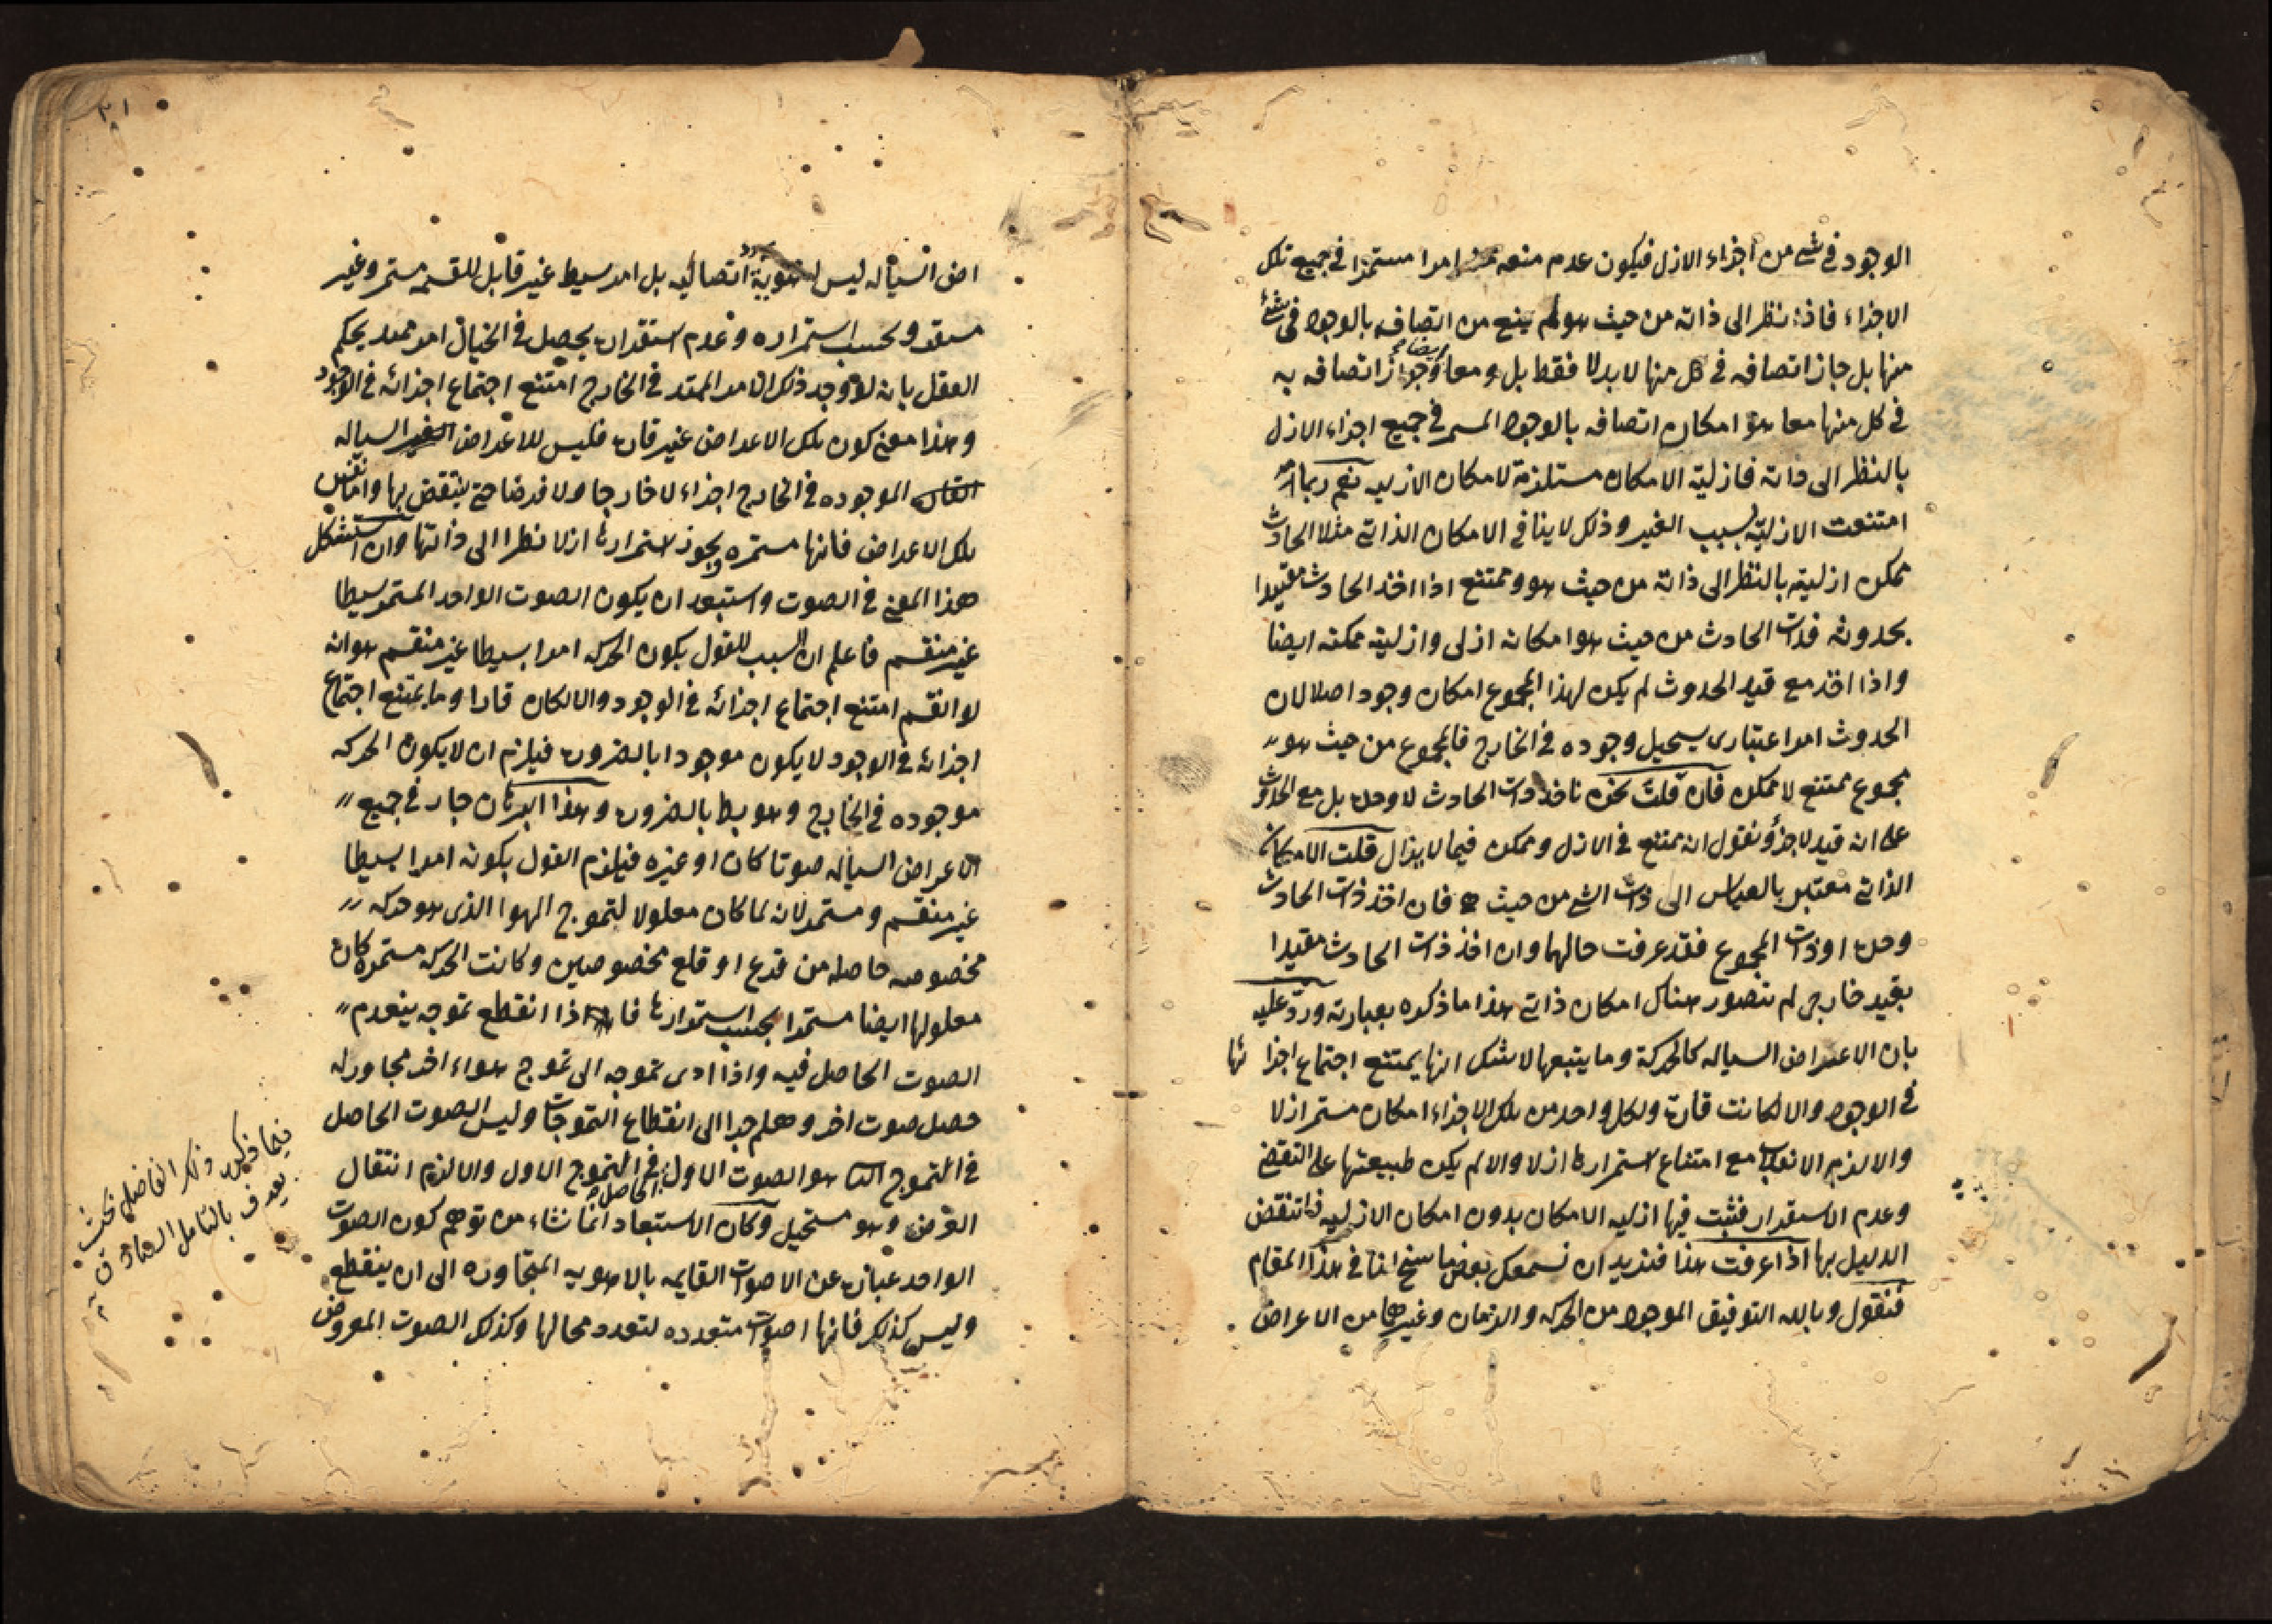 الوجود في شئ من اجزاء الازل فيكون عدم منعه امرا مستمرا في جميع تلك
الاجزاء فاذا نظر الى ذاته من حيث هو لم يمنع من اتصافه بالوجود في شئ
منها بل جاز اتصافه في كل منها لا بدلا فقط بل ومعا ايضا وجواز اتصافه به
في كل منها معا هو امكان اتصافه بالوجود المستمر في جميع اجزاء الازل
بالنظر الى ذاته فازلية الامكان مستلزمة لامكان الازلية نعم ربما
امتنعت الازلية بسبب الغير وذلك لا ينافي الامكان الذاتي مثلا الحادث
ممكن ازليته بالنظر الى ذاته من حيث هو وممتنع اذا اخذ الحادث مقيدا
بحدوثه فذات الحادث من حيث هو امكانه ازلى وازليته ممكنة ايضا
واذا اخذ مع قيد الحدوث لم يكن لهذا المجموع امكان وجود اصلا لان
الحدوث امر اعتباري يستحيل وجوده في الخارج فالمجموع من حيث هو
مجموع ممتنع لا ممكن فان قلت نحن ناخذ ذات الحادث لا وحده بل مع الحدوث
على انه قيد لا جزؤ ونقول انه ممتنع في الازل وممكن فيما لا يزال قلت الامكان
الذاتي معتبر بالقياس الى ذات الشئ من حيث هو فان اخذ ذات الحادث
وحده او ذات المجموع فقد عرفت حالهما وان اخذ ذات الحادث مقيدا
بقيد خارجي لم يتصور هناك امكان ذاتي هذا ما ذكره بعبارته ورد عليه
بان الاعراض السياله كالحركة وما يتبعها لا شك انها يمتنع اجتماع اجزائها
في الوجود والا لكانت قارة ولكل واحد من تلك الاجزاء امكان مستمر ازلا
والا لزم الانقلاب مع امتناع استمرارها ازلا والا لم يكن طبيعتها على التقضى
وعدم الاستقرار فثبت فيها ازليه الامكان بدون امكان الازليه فانتقض
الدليل بها اذا عرفت هذا فنريد ان نسمعك بعض ما سنح لنا في هذا المقام
فنقول وبالله التوفيق الموجود من الحركه والزمان وغيرها من الاعراض
اض السياله ليس له هوية اتصاليه بل امر بسيط غير قابل للقسمه مستمر وغير
مستقر وبحسب استمراره وعدم استقراره يحصل في الخيال امر ممتد يحكم
العقل بانه لو وجد ذلك الامر الممتد في الخارج امتنع اجتماع اجزائه في الوجود
وهذا معنى كون تلك الاعراض غير قاره فليس للاعراض السياله
الموجوده في الخارج اجزاء لا خارجا ولا فرضا حتى ينتقض بها واما نفس
تلك الاعراض فانها مستمره ويجوز استمرارها ازلا نظرا الى ذاتها وان استشكل
هذا المعنى في الصوت واستبعد ان يكون الصوت الواحد المستمر بسيطا
غير منقسم فاعلم ان السبب للقول بكون الحركه امرا بسيطا غير منقسم هو انه
لو انقسم امتنع اجتماع اجزائه في الوجود والا لكان قارا وما يمتنع اجتماع
اجزائه في الوجود لا يكون موجودا بالضروره فيلزم ان لا يكون الحركه
موجوده في الخارج وهو بط بالضروره وهذا البرهان جار في جميع
الاعراض السياله صوتا كان او غيره فيلزم القول بكونه امرا بسيطا
غير منقسم ومستمر لانه لما كان معلولا لتموج الهوا الذى هو حركه
مخصوصه حاصله من قرع او قلع مخصوصين وكانت الحركه مستمره كان
معلولها ايضا مستمرا بحسب استمرارها فاذا انقطع تموجه ينعدم
الصوت الحاصل فيه واذا ادى تموجه الى تموج هواء اخر مجاور له
حصل صوت اخر وهلم جرا الى انقطاع التموجات وليس الصوت الحاصل
في التموج الثانى هو الصوت الاول الحاصل في التموج الاول والا لزم انتقال
العرض وهو مستحيل وكان الاستبعاد انما نشاء من توهم كون الصوت
الواحد عباره عن الاصوات القايمه بالاهويه المتجاوره الى ان ينقطع
وليس كذلك فانها اصوات متعدده لتعدد محالها وكذلك الصوت المعروض
فيما ذكره ذلك الفاضل بحث
يعرف بالتامل الصادق